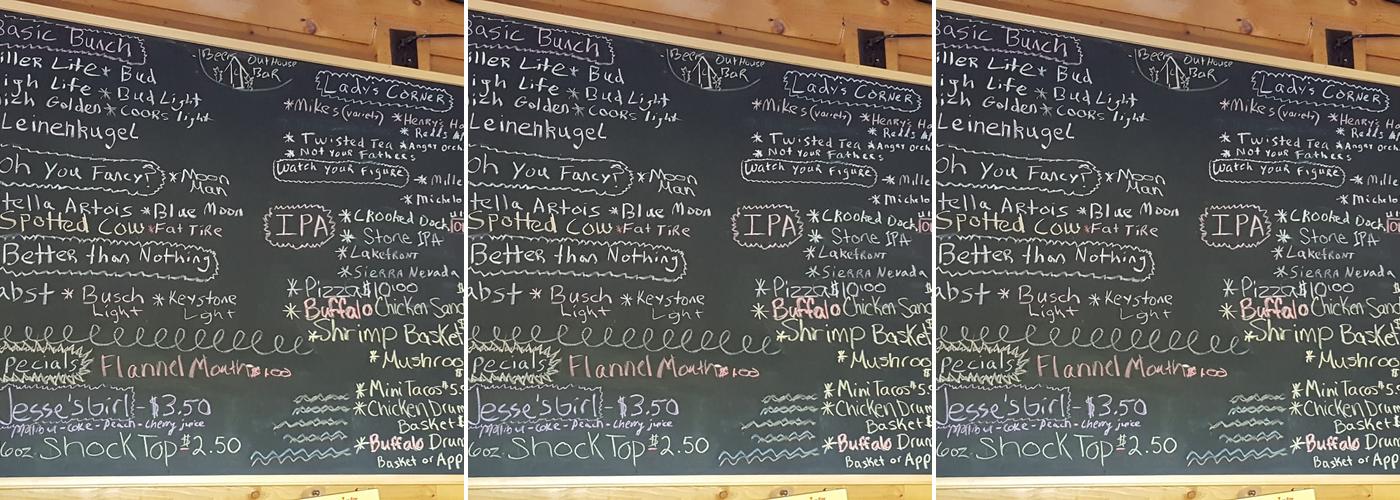 Basic Bunch
Beer OutHouse BAR
iller Lite * Bud
igh Life * Bud Light
Golden * COORS light
Leinenkugel
Lady's CORNER
*Mike's (variety) *Henry's
* Redds
* Twisted Tea *Anger Orch
* Not Your Fathers
Watch Your Figure
*Mille
*Michelo
Oh You Fancy? *Moon Man
tella Artois *Blue Moon
Spotted Cow *Fat Tire
IPA *CROOked Dock
* Stone IPA
*LakefRONT
*SIERRA Nevada
Better than Nothing
abst * Busch Light *Keystone Light
*Pizza $10.00
*Buffalo Chicken Sand
*Shrimp Basket
*Mushroo
pecials Flannel Mouth $1.00
Jesse's Girl - $3.50
Malibu - Coke - Peach - Cherry juice
6oz. Shock Top $2.50
*Mini Tacos
*Chicken Drum
Basket
*Buffalo Drum
Basket or App
Basic Bunch
Beer OutHouse BAR
iller Lite * Bud
igh Life * Bud Light
Golden * COORS light
Leinenkugel
Lady's CORNER
*Mike's (variety) *Henry's
* Redds
* Twisted Tea *Anger Orch
* Not Your Fathers
Watch Your Figure
*Mille
*Michelo
Oh You Fancy? *Moon Man
tella Artois *Blue Moon
Spotted Cow *Fat Tire
IPA *CROOked Dock
* Stone IPA
*LakefRONT
*SIERRA Nevada
Better than Nothing
abst * Busch Light *Keystone Light
*Pizza $10.00
*Buffalo Chicken Sand
*Shrimp Basket
*Mushroo
pecials Flannel Mouth $1.00
Jesse's Girl - $3.50
Malibu - Coke - Peach - Cherry juice
6oz. Shock Top $2.50
*Mini Tacos
*Chicken Drum
Basket
*Buffalo Drum
Basket or App
Basic Bunch
Beer OutHouse BAR
iller Lite * Bud
igh Life * Bud Light
Golden * COORS light
Leinenkugel
Lady's CORNER
*Mike's (variety) *Henry's
* Redds
* Twisted Tea *Anger Orch
* Not Your Fathers
Watch Your Figure
*Mille
*Michelo
Oh You Fancy? *Moon Man
tella Artois *Blue Moon
Spotted Cow *Fat Tire
IPA *CROOked Dock
* Stone IPA
*LakefRONT
*SIERRA Nevada
Better than Nothing
abst * Busch Light *Keystone Light
*Pizza $10.00
*Buffalo Chicken Sand
*Shrimp Basket
*Mushroo
pecials Flannel Mouth $1.00
Jesse's Girl - $3.50
Malibu - Coke - Peach - Cherry juice
6oz. Shock Top $2.50
*Mini Tacos
*Chicken Drum
Basket
*Buffalo Drum
Basket or App